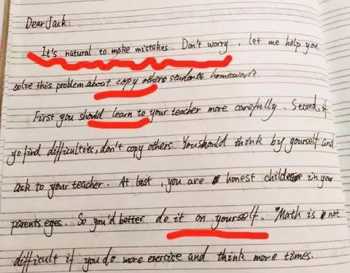 Dear Jack:
It's natural to make mistakes. Don't worry, let me help you
solve this problem about copy others students homework?
First you should learn to your teacher more carefully. Second, if
yo find difficulties, don't copy others. You should think by yourself and
ask to your teacher. At last, you are honest children in your
parents eyes. So you'd better do it on yourself. Math is not
difficult if you do more exercise and think more times.